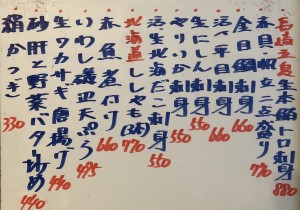 長崎五島 生本鮪トロ刺身 880
赤貝帆立二点盛り 770
金目鯛刺身 660
活〆平目刺身 660
生にしん刺身 550
やりいか刺身 550
活生だこ刺身 550
北海道ししゃも(3尾) 770
赤魚煮付 660
いわし磯辺天ぷら 495
生ワカサギ唐揚げ 440
砂肝と野菜バター炒め 440
絹かつぎ 330